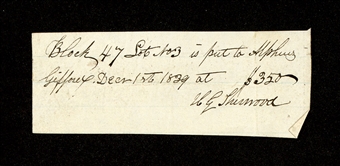 Block 47 Lot No3 is put to Alpheus
Gifford Decr 1st 1839 at $350
H G Sherwood